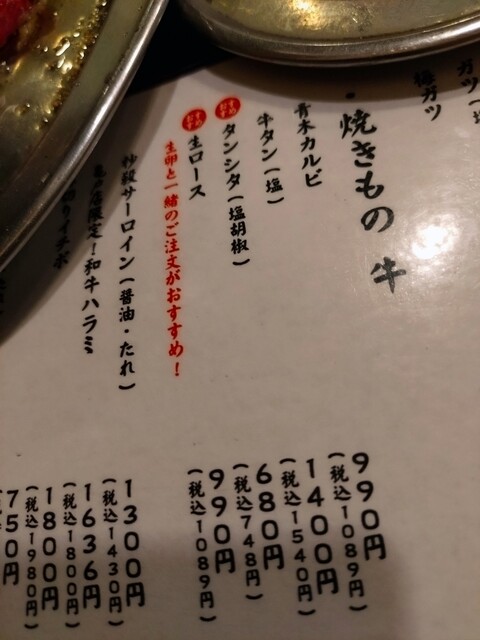 ガツ(塩
梅ガツ
・焼きもの 牛
青木カルビ 990円
(税込1089円)
牛タン(塩) 1400円
(税込1540円)
おすすめ タンシタ(塩胡椒) 680円
(税込748円)
おすすめ 生ロース 990円
(税込1089円)
生卵と一緒のご注文がおすすめ!
秒殺サーロイン(醤油・たれ) 1300円
(税込1430円)
亀戸店限定!和牛ハラミ 1636円
(税込1800円)
切りイチボ 1800円
(税込1980円)
750円